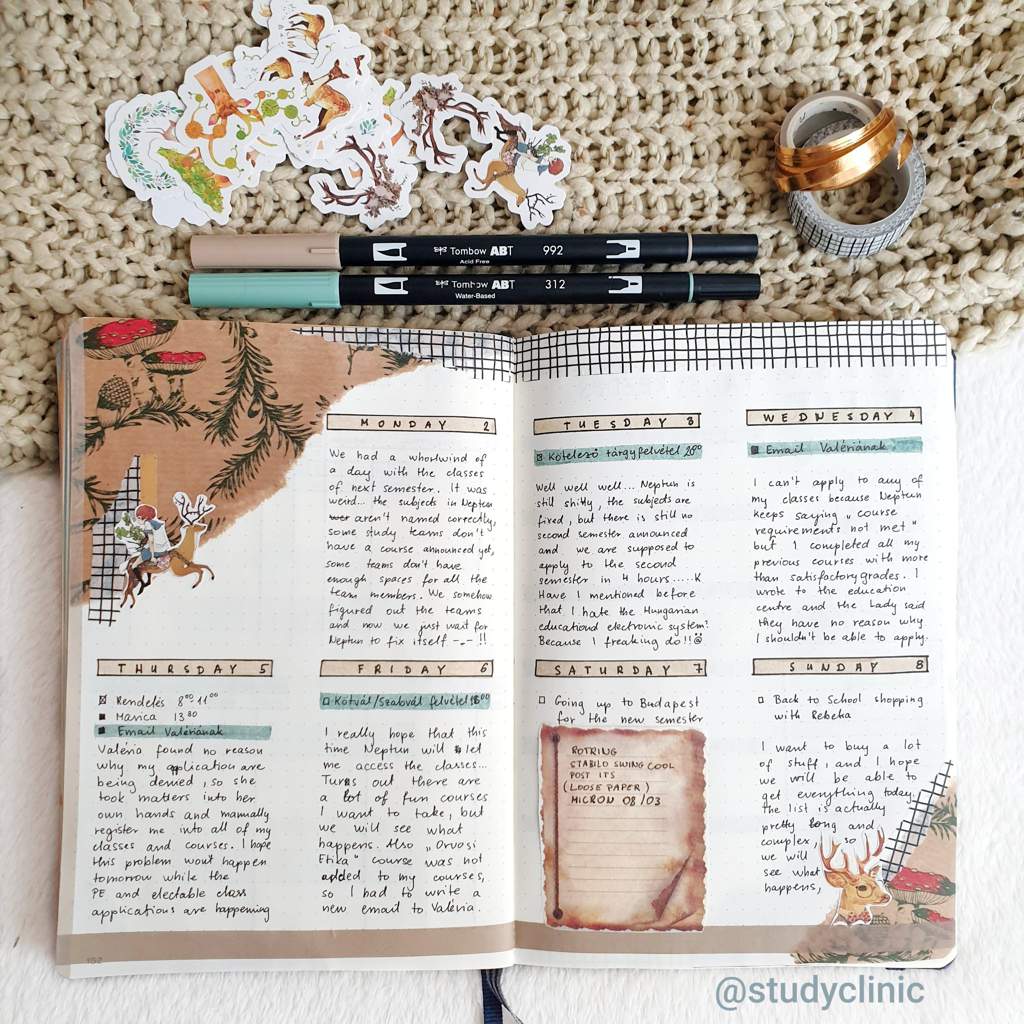 Tombow ABT 992
Acid Free
Tombow ABT 312
Water-Based
MONDAY 2
We had a whorlwind of
a day with the classes
of next semester. It was
weird... the subjects in Neptun
aren't named correctly,
some study teams don't
have a course announced yet,
some teams don't have
enough spaces for all the
team members. We somehow
figured out the teams
and now we just wait for
Neptun to fix itself -.- !!
TUESDAY 3
Kötelező tárgyfelvétel
Well well well... Neptun is
still shitty, the subjects are
fixed, but there is still no
second semester announced
and we are supposed to
apply to the second
semester in 4 hours.....K
Have I mentioned before
that I hate the Hungarian
educational electronic system?
Because I freaking do!!
WEDNESDAY 4
Email Valériának
I can't apply to any of
my classes because Neptun
keeps saying „course
requirements not met"
but I completed all my
previous courses with more
than satisfactory grades. I
wrote to the education
centre and the Lady said
they have no reason why
I shouldn't be able to apply.
THURSDAY 5
Rendelés 8⁰⁰-11⁰⁰
Marica 13³⁰
Email Valériának
Valéria found no reason
why my application are
being denied, so she
took matters into her
own hands and manually
register me into all of my
classes and courses. I hope
this problem won't happen
tomorrow while the
PE and electable class
applications are happening
FRIDAY 6
Kötvál/Szabvál felvétel
I really hope that this
time Neptun will let
me access the classes...
Turns out there are
a lot of fun courses
I want to take, but
we will see what
happens. Also „Orvosi
Etika" course was not
added to my courses,
so I had to write a
new email to Valéria.
SATURDAY 7
Going up to Budapest
for the new semester
ROTRING
STABILO SWING COOL
POST ITS
(LOOSE PAPER)
MICRON 08/03
SUNDAY 8
Back to School shopping
with Rebeka
I want to buy a lot
of stuff, and I hope
we will be able to
get everything today.
The list is actually
pretty long and
complex, so
we will
see what
happens,
152
@studyclinic